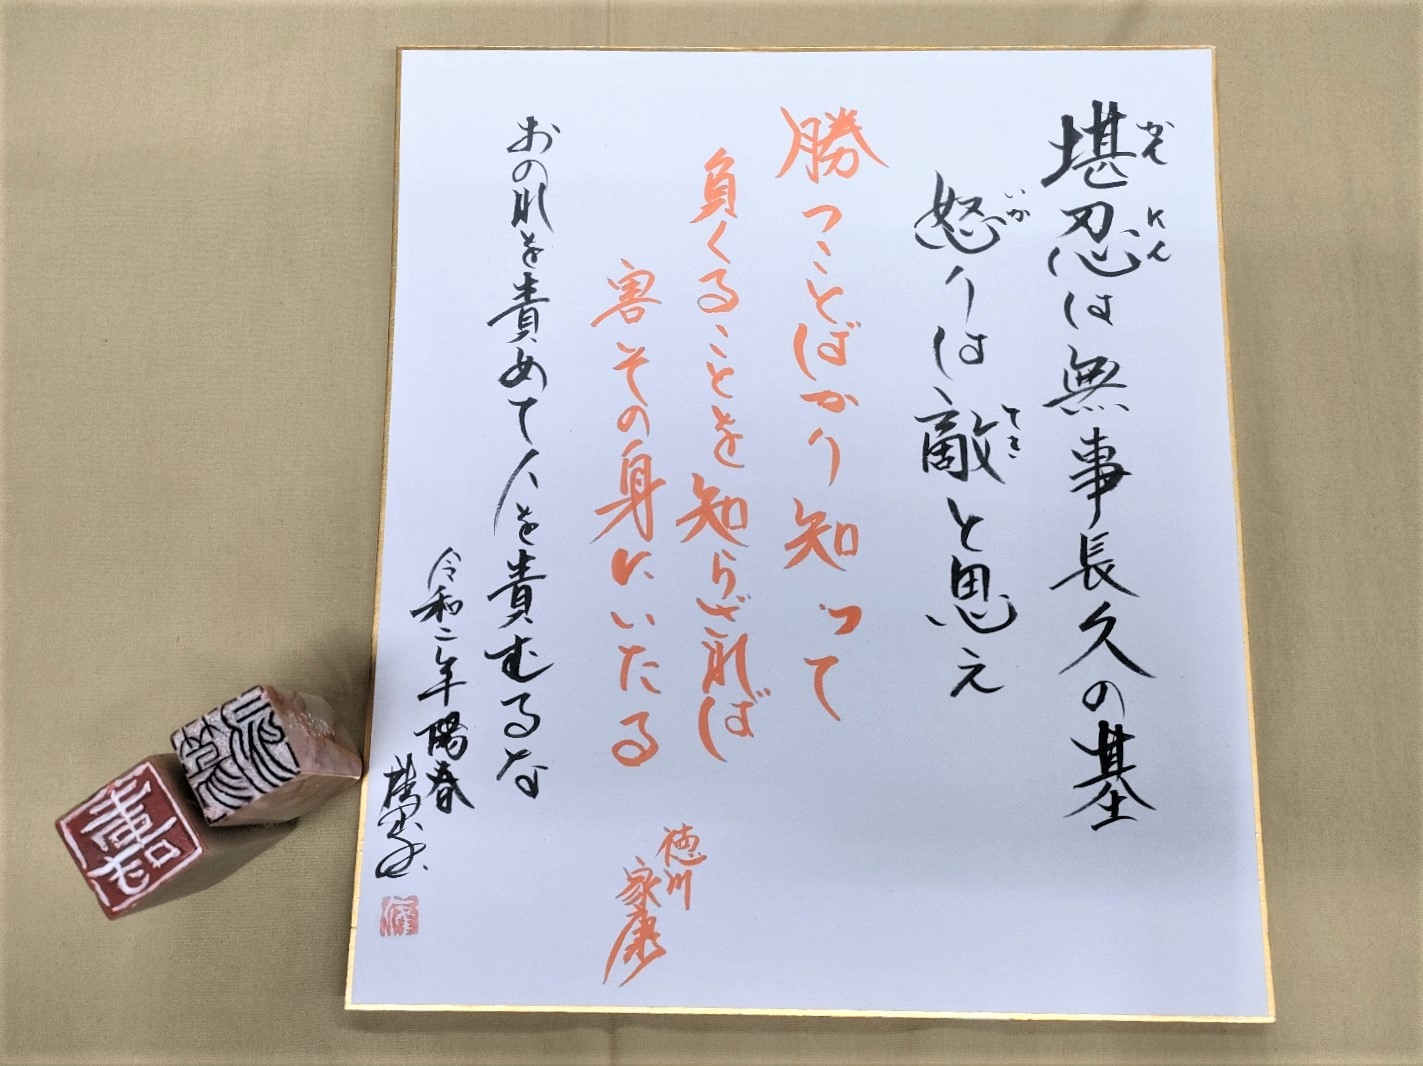 堪忍は無事長久の基
かんにん
怒りは敵と思え
いか
てき
勝つことばかり知って
負くることを知らざれば
害その身にいたる
おのれを責めて人を責むるな
徳川
家康
令和二年陽春